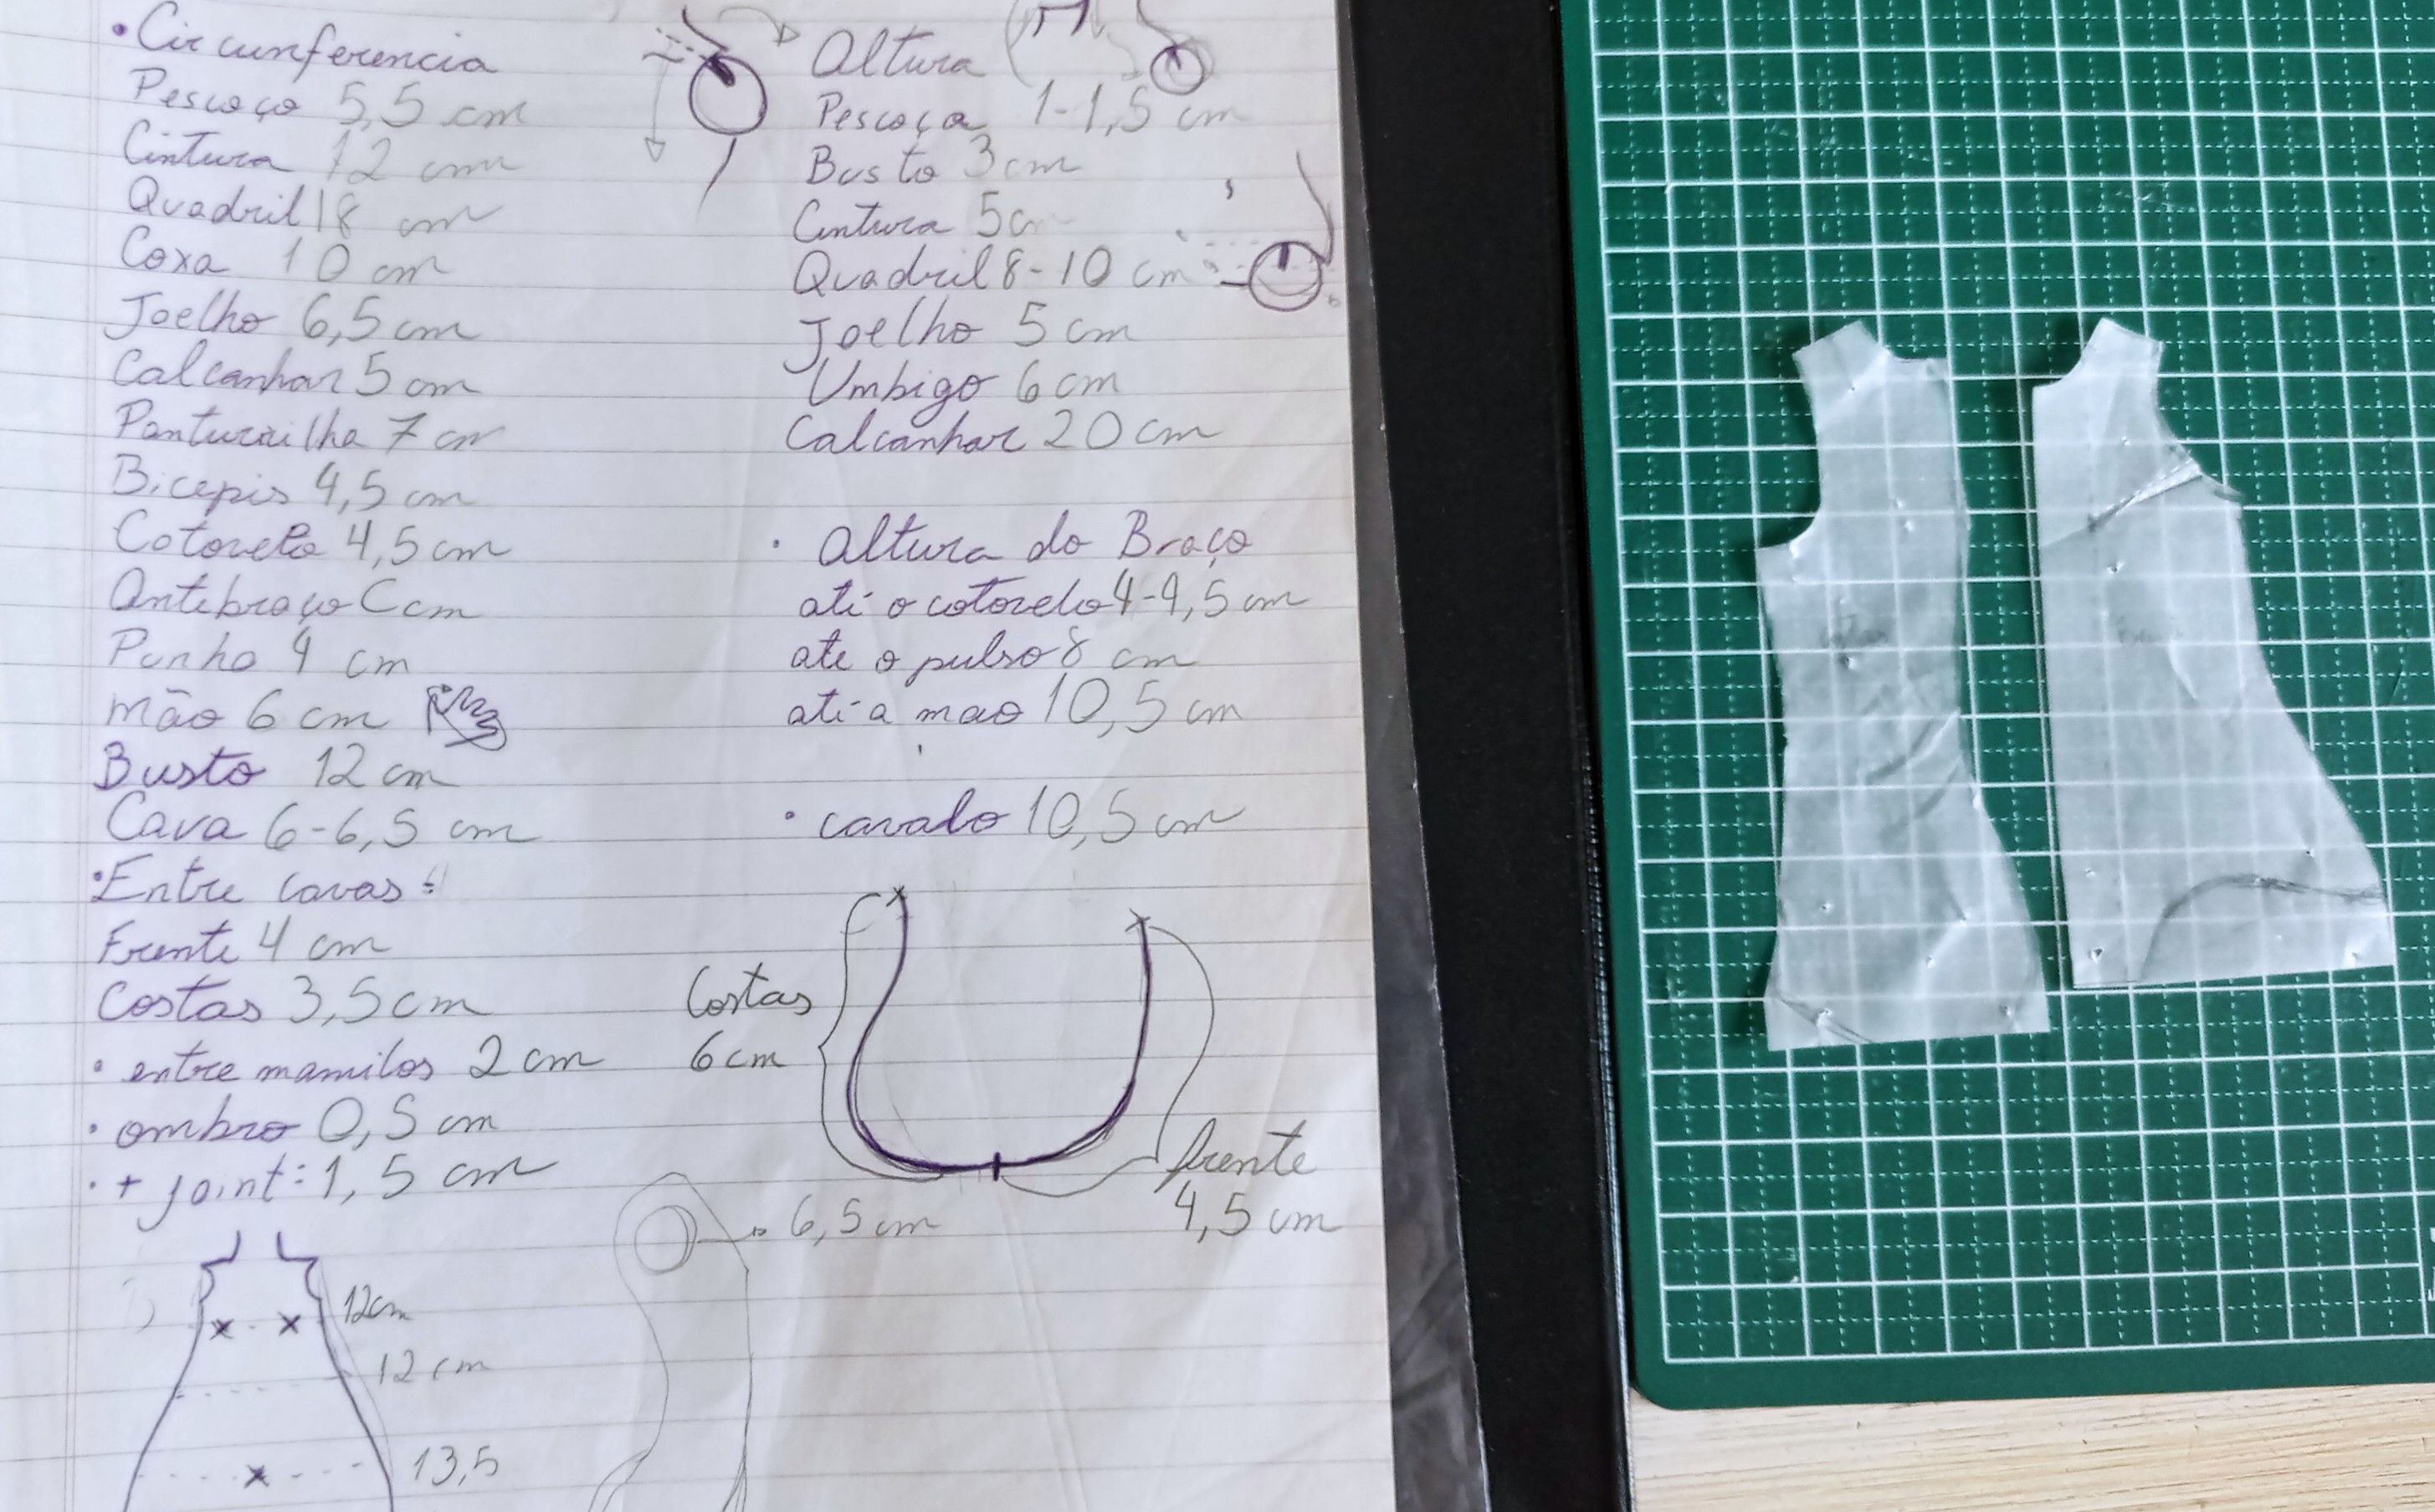 • Circunferencia
Pescoço 5,5 cm
Cintura 12 cm
Quadril 18 cm
Coxa 10 cm
Joelho 6,5 cm
Calcanhar 5 cm
Panturrilha 7 cm
Bicepis 4,5 cm
Cotovelo 4,5 cm
Antibraço C cm
Punho 4 cm
mão 6 cm
Busto 12 cm
Cava 6-6,5 cm
• Entre cavas:
Frente 4 cm
Costas 3,5 cm
• entre mamilos 2 cm
• ombro 0,5 cm
• + joint: 1,5 cm
12cm
12 cm
13,5
Altura
Pescoço 1-1,5 cm
Busto 3 cm
Cintura 5 cm
Quadril 8-10 cm
Joelho 5 cm
Umbigo 6 cm
Calcanhar 20 cm
• Altura do Braço
ati o cotovelo 4-4,5 cm
ate o pulso 8 cm
ati a mao 10,5 cm
• cavalo 10,5 cm
Costas
6 cm
frente
4,5 cm
6,5 cm
costas